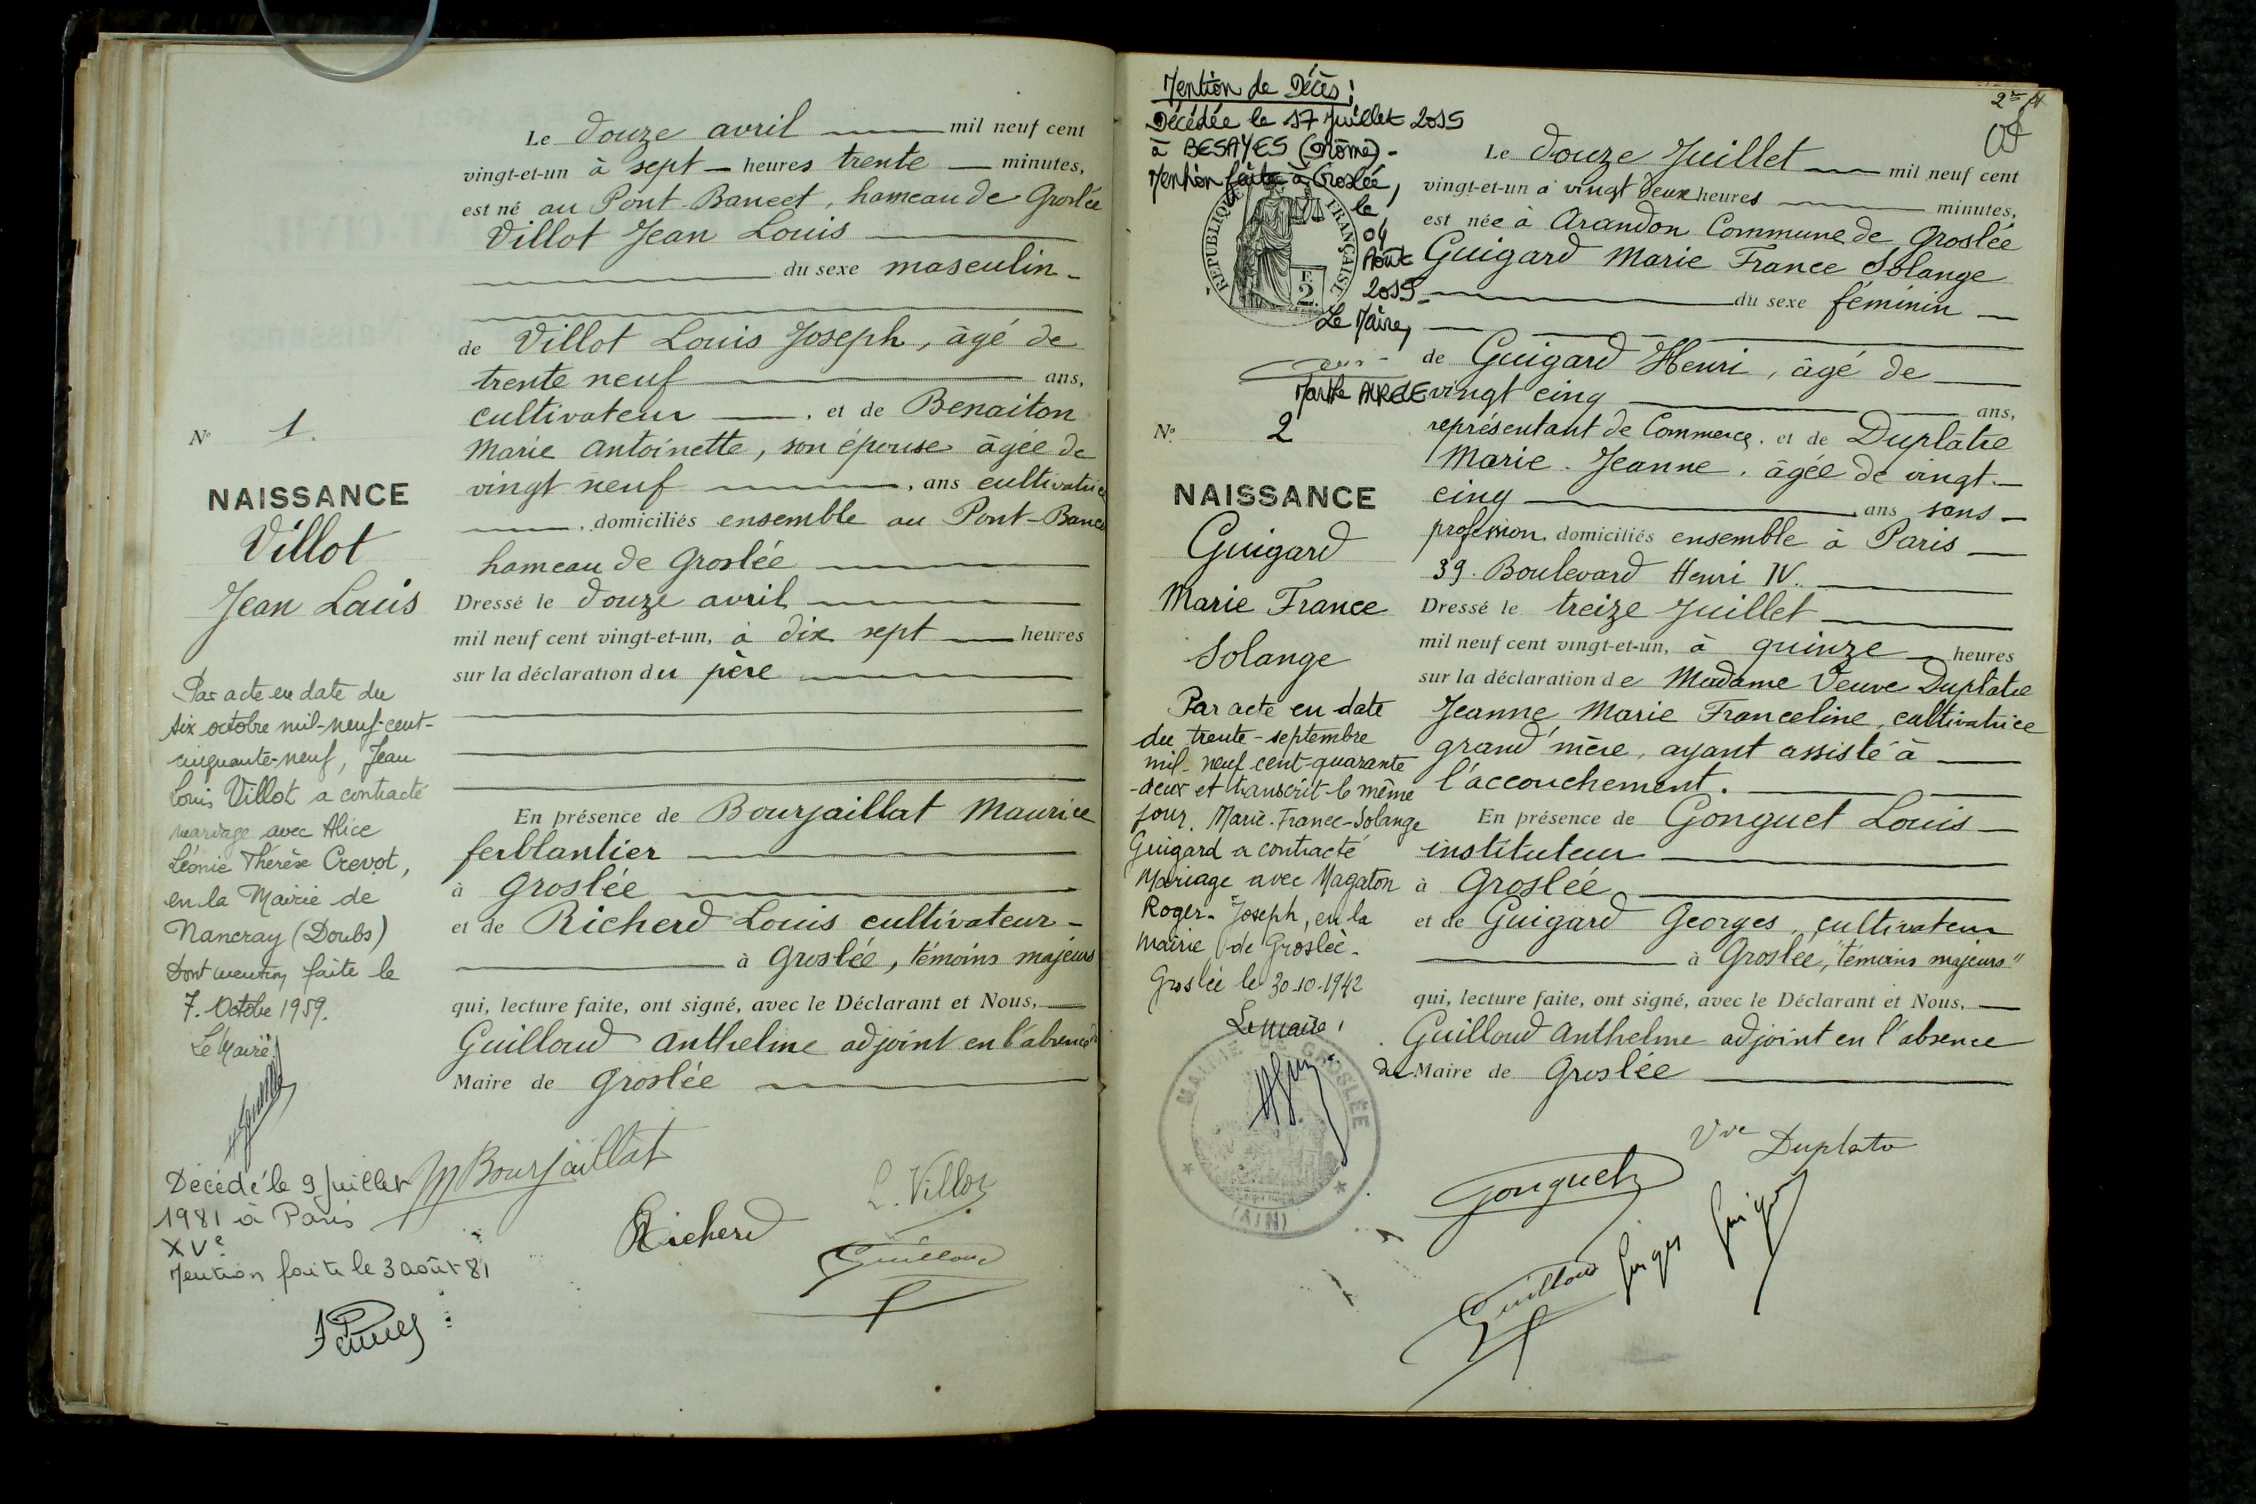 Le douze avril mil neuf cent
vingt-et-un à sept heures trente minutes,
est né au Pont-Bancet, hameau de Groslée
Villot Jean Louis
du sexe masculin
de Villot Louis Joseph, âgé de
trente neuf ans,
cultivateur, et de Benaiton
Marie Antoinette, son épouse âgée de
vingt neuf, ans cultivatrice
, domiciliés ensemble au Pont-Bancet
hameau de Groslée
Dressé le douze avril
mil neuf cent vingt-et-un, à dix sept heures
sur la déclaration du père
En présence de Bourjaillat Maurice
ferblantier
à Groslée
et de Richerd Louis cultivateur
à Groslée, témoins majeurs
qui, lecture faite, ont signé, avec le Déclarant et Nous,
Guilloud Anthelme adjoint en l'absence du
Maire de Groslée
No 1.
NAISSANCE
Villot
Jean Louis
Par acte en date du
six octobre mil-neuf-cent-
cinquante-neuf, Jean
Louis Villot a contracté
mariage avec Alice
Léonie Thérèse Crevot,
en la Mairie de
Nancray (Doubs)
Dont mention faite le
7. Octobre 1959.
Le Maire
Décédé le 9 Juillet
1981 à Paris
XVe
Mention faite le 3 août 81
M Bourjaillat
Richerd
L. Villot
Guilloud
2e
Mention de Décès:
Décédée le 17 Juillet 2015
à BESAYES (Drôme)-
Mention faite à Groslée,
le
04
Août
2015
Le Maire,
Marthe AURELE
RÉPUBLIQUE FRANÇAISE
F
2.
Le douze Juillet mil neuf cent
vingt-et-un à vingt deux heures minutes,
est née à Arandon Commune de Groslée
Guigard Marie France Solange
du sexe féminin
de Guigard Henri, âgé de
vingt cinq ans,
représentant de Commerce, et de Duplatre
Marie-Jeanne, âgée de vingt-
cinq ans sans
profession, domiciliés ensemble à Paris
39. Boulevard Henri IV.
Dressé le treize Juillet
mil neuf cent vingt-et-un, à quinze heures
sur la déclaration de Madame Veuve Duplatre
Jeanne Marie Franceline, cultivatrice
grand'mère, ayant assisté à
l'accouchement.
En présence de Gonguet Louis
instituteur
à Groslée
et de Guigard Georges, cultivateur
à Groslée, "témoins majeurs"
qui, lecture faite, ont signé, avec le Déclarant et Nous,
Guilloud Anthelme adjoint en l'absence
du Maire de Groslée
No. 2
NAISSANCE
Guigard
Marie France
Solange
Par acte en date
du trente-septembre
mil-neuf cent-quarante
-deux et transcrit le même
jour. Marie-France-Solange
Guigard a contracté
Mariage avec Magaton
Roger-Joseph, en la
Mairie de Groslée.
Groslée le 30.10.1942
Le Maire,
MAIRIE DE GROSLÉE
(AIN)
Vve Duplatre
Gonguet
Guilloud